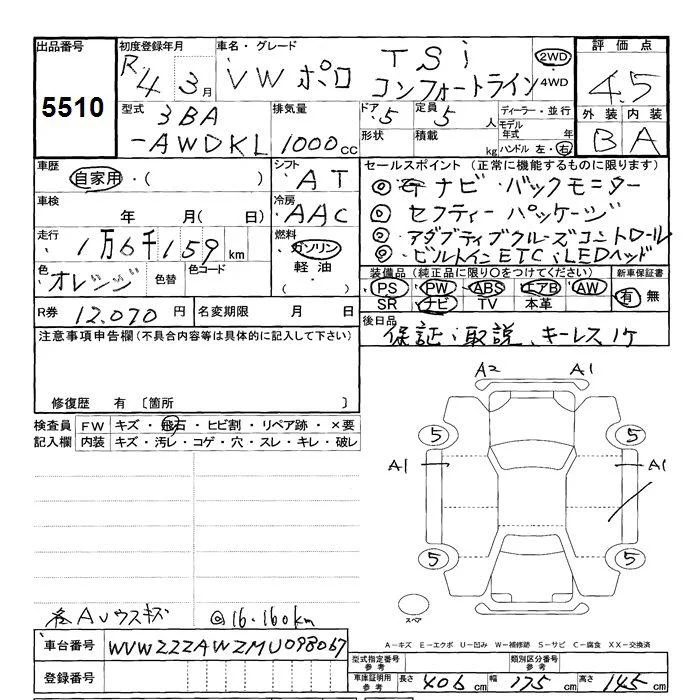 出品番号
5510
初度登録年月
R4 3月
車名・グレード
VW ポロ TSi コンフォートライン
2WD
4WD
評価点
4.5
外装 内装
B A
型式
3BA
-AWDKL
排気量
1000cc
ドア 5
定員 5人
形状
積載 kg
ディーラー・並行
モデル年式 年
ハンドル 左・右
車歴
自家用・( )
シフト
AT
車検
年 月( 日)
冷房
AAC
走行
1万6千159km
燃料
ガソリン
軽油
( )
色
オレンジ
色替
色コード
R券 12,070円
名変期限 月 日
セールスポイント(正常に機能するものに限ります)
◎ ナビ・バックモニター
◎ セフティーパッケージ
◎ アダプティブクルーズコントロール
◎ ビルトインETC・LEDヘッド
装備品(純正品に限り○をつけてください)
PS PW ABS エアB AW
SR ナビ TV 本革
新車保証書
有 無
後日品
保証・取説、キーレス1ケ
注意事項申告欄(不具合内容等は具体的に記入して下さい)
修復歴 有〔箇所 〕
検査員記入欄
FW キズ・飛石・ヒビ割・リペア跡・×要
内装 キズ・汚レ・コゲ・穴・スレ・キレ・破レ
A2 A1
5 5
A1 A1
5 5
スペア
各Aゥウスキズ @16.160km
A-キズ E-エクボ U-凹み W-補修跡 S-サビ C-腐食 XX-交換済
車台番号
WVWZZZAWZMU098067
登録番号
型式指定番号参考
類別区分番号参考
車庫証明用参考
長さ 406cm 幅 175cm 高さ 145cm